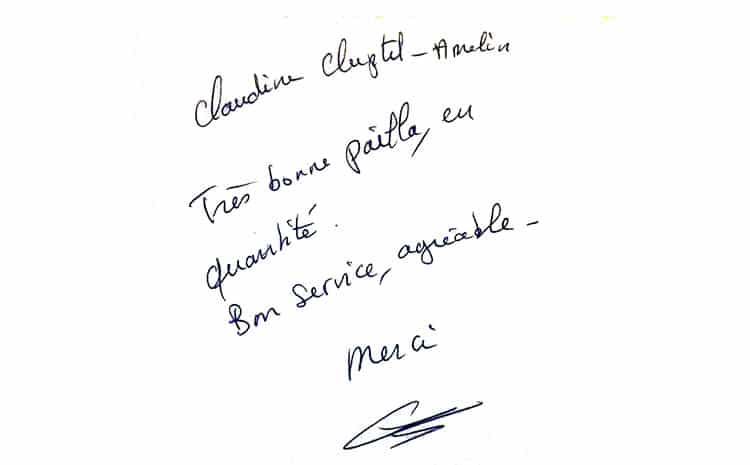 Claudine Cluztel-Amelin
Très bonne päella, en
quantité.
Bon service, agréable -
Merci